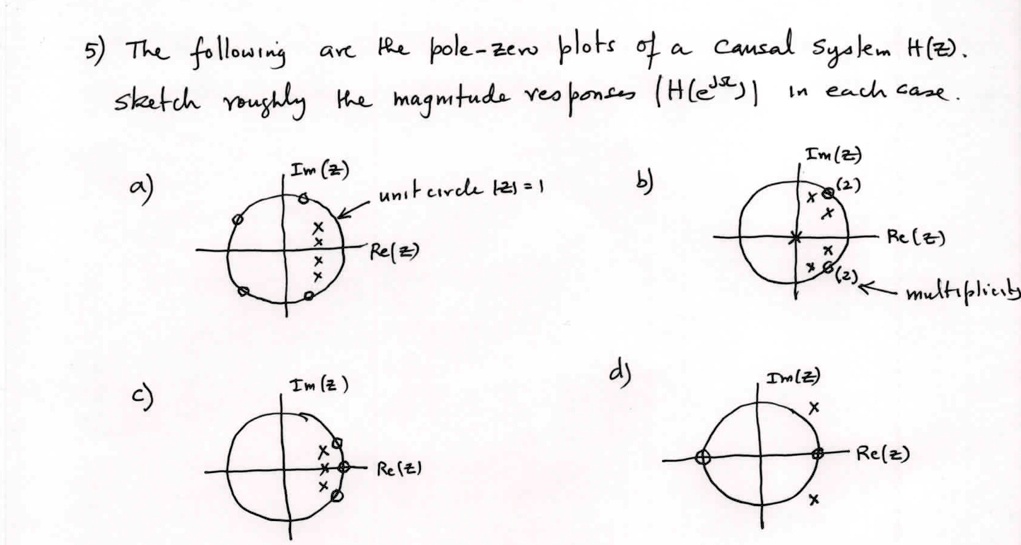 5) The following are the pole-zero plots of a causal system H(z).
sketch roughly the magnitude responses |H(e^jΩ)| in each case.
a)
Im(z)
unit circle |z|=1
Re(z)
b)
Im(z)
(2)
Re(z)
(2)
multiplicity
c)
Im(z)
Re(z)
d)
Im(z)
Re(z)